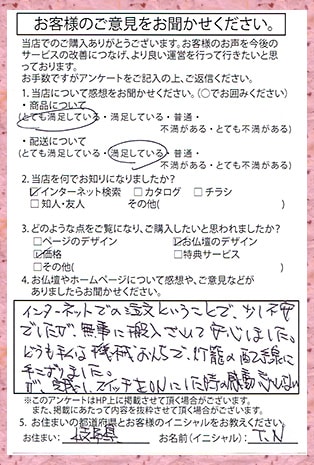 お客様のご意見をお聞かせください。
当店でのご購入ありがとうございます。お客様のお声を今後の
サービスの改善につなげ、より良い運営を行って行きたいと思
っております。
お手数ですがアンケートをご記入の上、ご返信ください。
1. 当店について感想をお聞かせください。(○でお囲みください)
・商品について
(とても満足している・満足している・普通・
不満がある・とても不満がある)
・配送について
(とても満足している・満足している・普通・
不満がある・とても不満がある)
2. 当店を何でお知りになりましたか?
☑インターネット検索 □カタログ □チラシ
□知人・友人 その他( )
3. どのような点をご覧になり、ご購入したいと思われましたか?
□ページのデザイン ☑お仏壇のデザイン
☑価格 □特典サービス
□その他( )
4. お仏壇やホームページについて感想や、ご意見などが
ありましたらお聞かせください。
インターネットでの注文ということで、少し不安
でしたが、無事に搬入されて安心しました。
どうも私は機械おんちで、灯籠の配線に
手こずりました。
が、実感し、スイッチをONにした時の感動
※このアンケートはHP上に掲載させて頂く場合がございます。
また、掲載にあたって内容を抜粋させて頂く場合がございます。
5. お住まいの都道府県とお客様のイニシャルをお教えください。
お住まい: 岐阜県 お名前(イニシャル): T.N